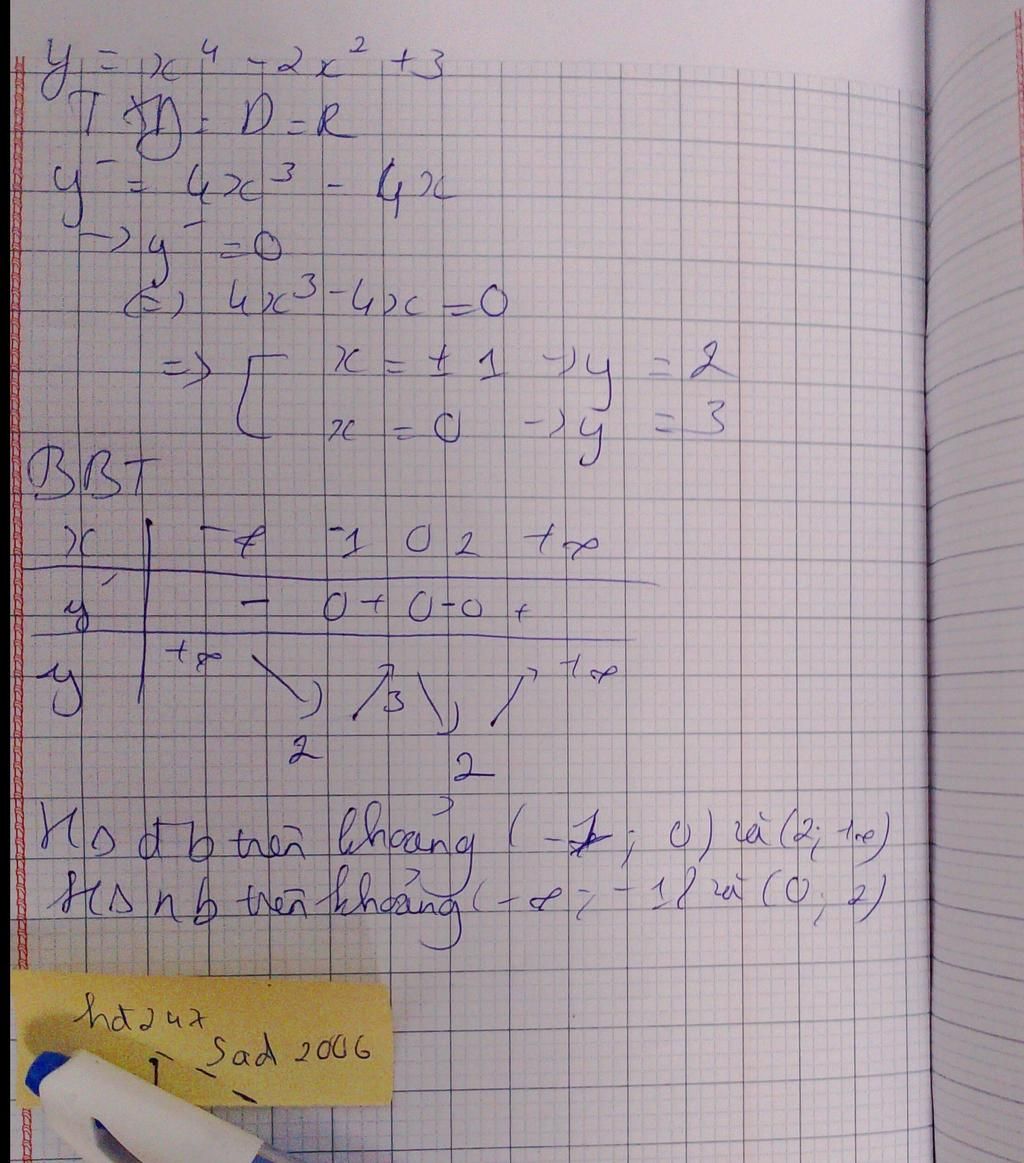 y = x⁴ - 2x² + 3
TXD: D = R
y' = 4x³ - 4x
→ y' = 0
(=) 4x³ - 4x = 0
=> [ x = ± 1 → y = 2
x = 0 → y = 3
BBT
x | -∞ -1 0 2 +∞
y' | - 0 + 0 - 0 +
y | +∞ ↘ 2 ↗ 3 ↘ 2 ↗ +∞
HS đb trên khoảng (-1; 0) và (2; +∞)
HS nb trên khoảng (-∞; -1) và (0; 2)
hd247
Sad 2006